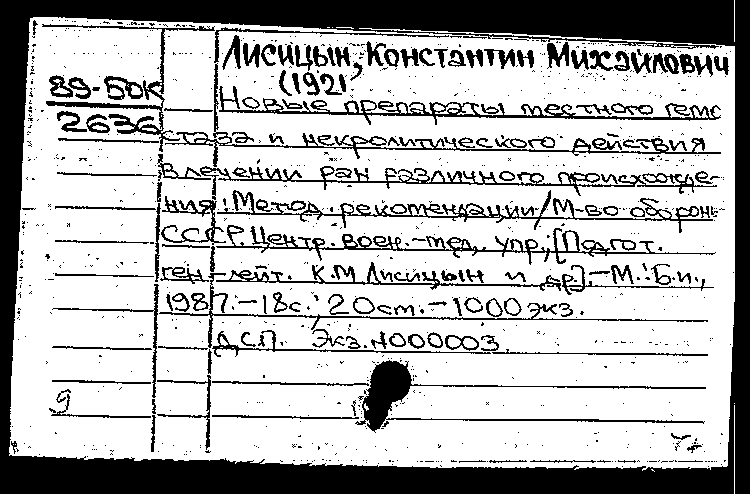 Лисицын, Константин Михайлович
(1921
89-БОК
2636
Новые препараты местного гемо
стаза и некролитического действия
в лечении ран различного происхожде-
ния: Метод. рекомендации/М-во оборон
СССР. Центр. воен.-мед. упр.; [Подгот.
ген.-лейт. К.М. Лисицын и др].-М.: Б.и.,
1987.-18с.; 20см.-1000экз.
ДСП. Экз.N000003.
9